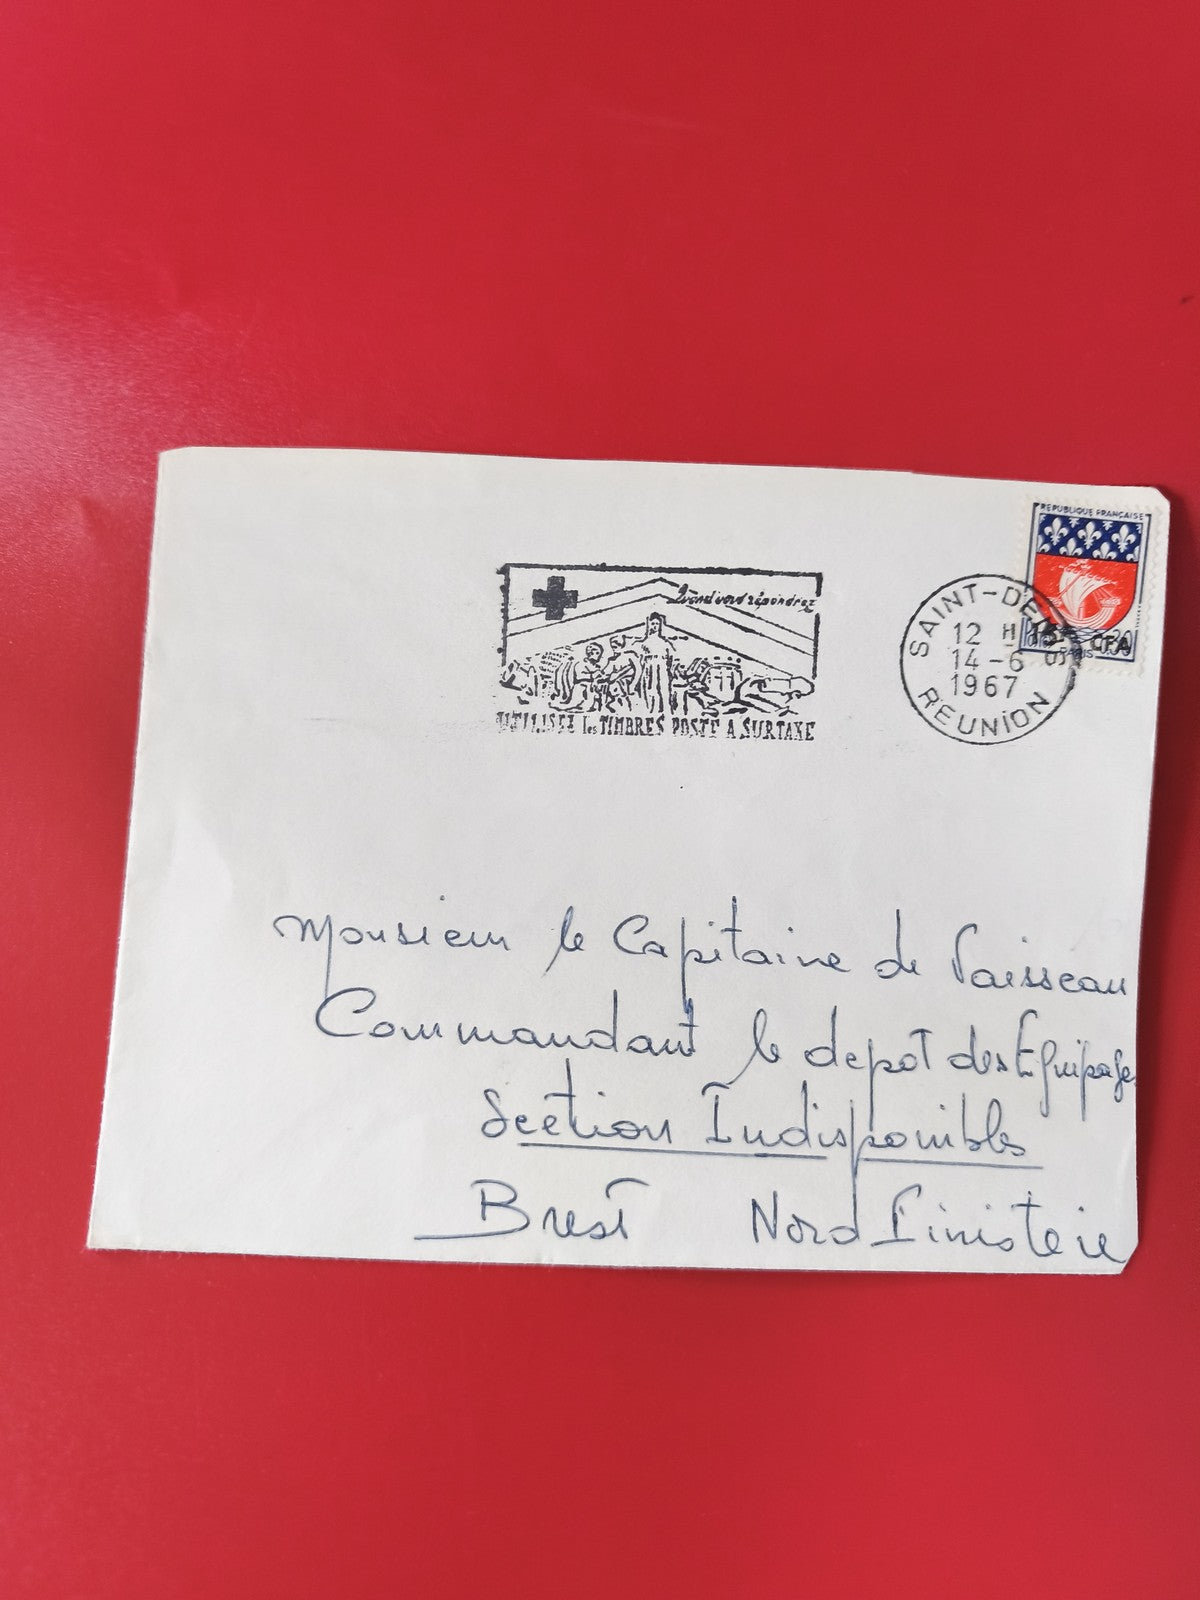 REPUBLIQUE FRANÇAISE
15F CFA
0.30
PARIS
SAINT-DENIS
12 H
14-6
1967
REUNION
Quand vous répondrez
UTILISEZ les TIMBRES POSTE A SURTAXE
Monsieur le Capitaine de Vaisseau
Commandant le depot des Equipages
Section Indisponibles
Brest Nord Finistere